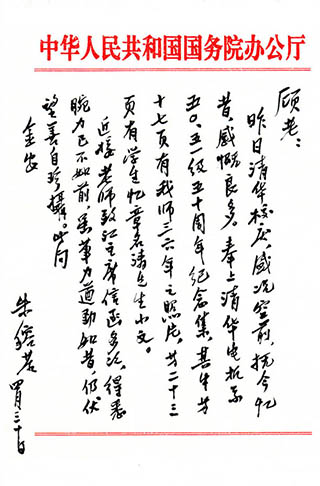 中华人民共和国国务院办公厅
顾老：
昨日清华校庆，盛况空前，抚今忆
昔，感慨良多。奉上清华电机系
五〇、五一级五十周年纪念集，其中第
十七页有我师三六年之照片，第二十三
页有学生忆章名涛先生小文。
近接老师致江主席信函多次，得悉
腕力已不如前，笔力遒劲如昔，仍伏
望善自珍摄。此问
金安
朱镕基
四月三十日